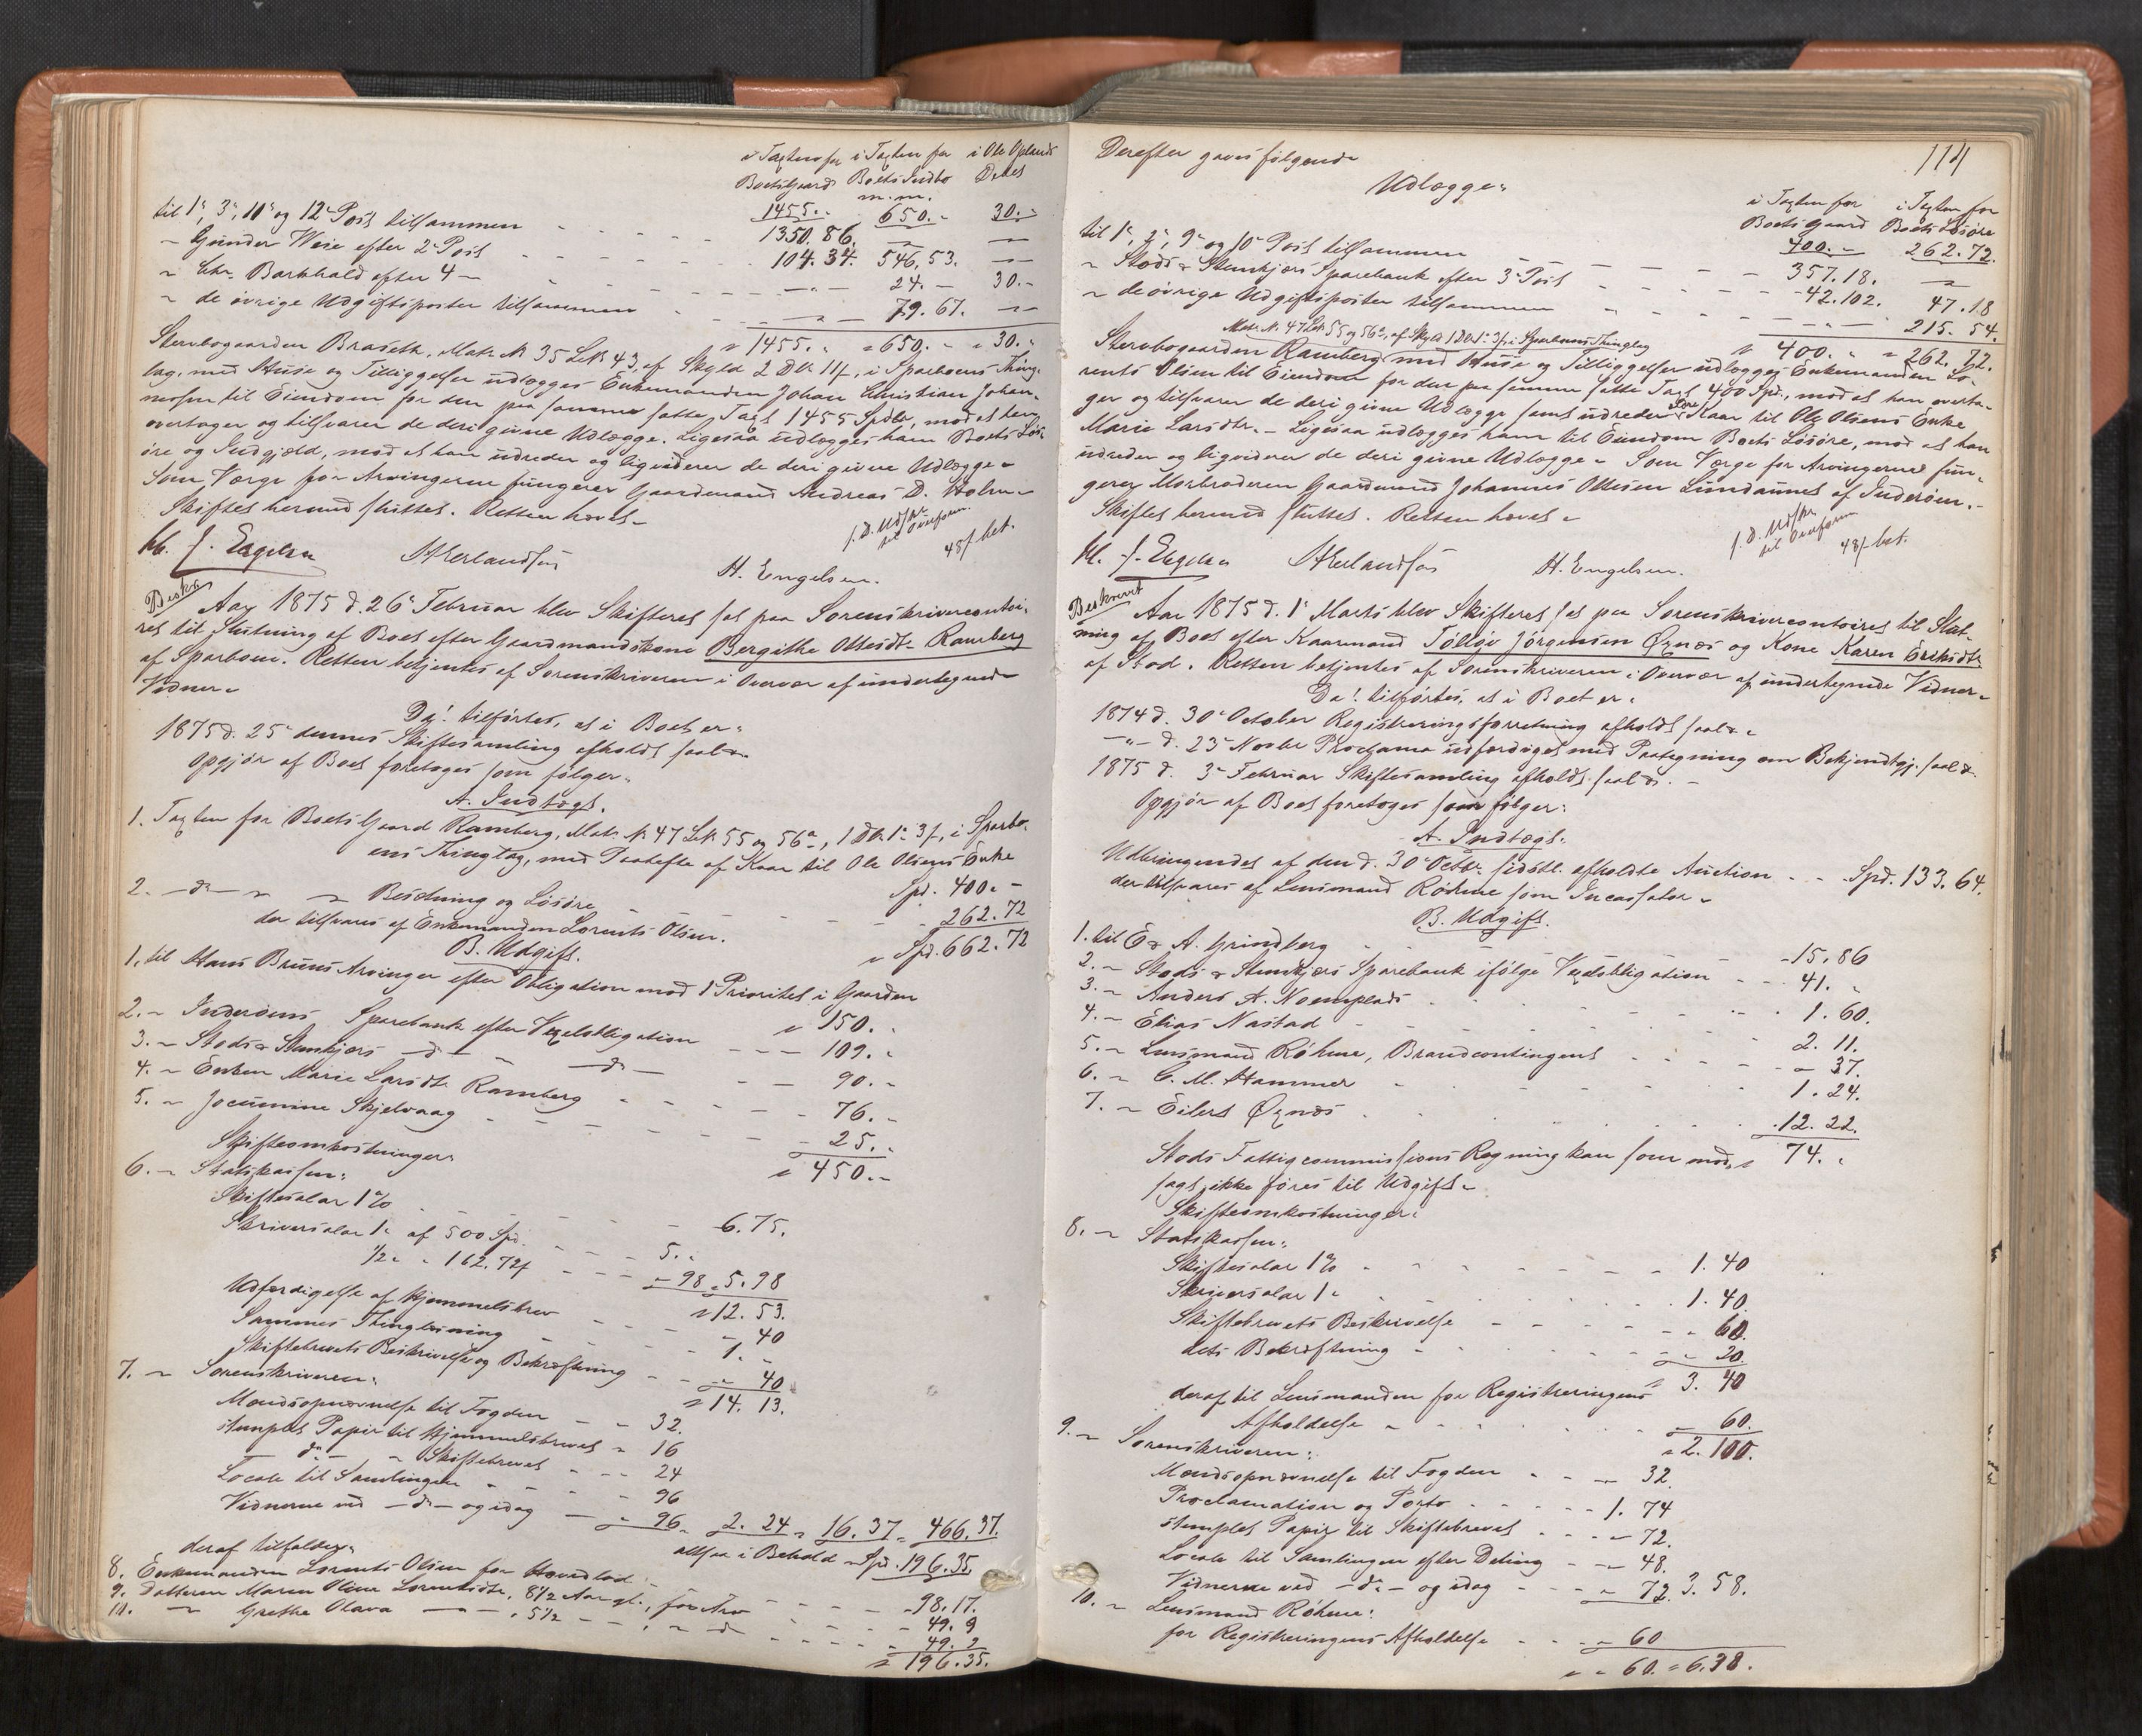 i Taxten for i Taxten for i Ole Oplands
Boets Gaard Boets Indbo Debet
m.m.
til 1ᵉ, 3ᵉ, 11ᵉ og 12ᵉ Post tilsammen 1455.- 650.- 30.-
- Gunder Weie efter 2ᵉ Post 1350.86. — —
- Chr. Barkhald efter 4 — 104.34. 546.53. —
— 24.- 30.-
- de øvrige Udgiftsposter tilsammen — 79.67. —
1455. 650. 30.
Stervbogaarden Braseth, Matr. N 35 LN 43, af Skyld 2 Dlr 11ß, i Sparboens Thing-
lag, med Huse og Tilliggelser udlægges Enkemanden Johan Christian Johan-
nessen til Eiendom for den paa samme satte Taxt 1455 Spdlr, mod at han
overtager og tilsvarer de deri givne Udlægge. Ligesaa udlægges ham Boets Løs-
øre og Indgjæld, mod at han udreder og ligviderer de deri givne Udlægge.
Som Værge for Arvingerne fungerer Gaardmand Andreas D. Holm.
Skiftet hermed sluttet. Retten hævet.
f. D. Udskr.
til Overform.
48ß bet.
J. Engelsen H Erlandsen H. Engelsen.
Beskr.
Aar 1875 d. 26ᵉ Februar blev Skifteret sat paa Sorenskrivercontoi-
ret til Slutning af Boet efter Gaardmandskone Bergithe Ottesdtr Ramberg
af Sparboen. Retten betjentes af Sorenskriveren i Overvær af undertegnede
Vidner.
Da! tilførtes, at i Boet er:
1875 d. 25ᵉ dennes Skiftesamling afholdt saal.
Opgjør af Boet foretoges som følger:
A. Indtægt.
1. Taxten for Boets Gaard Ramberg, Matr N 47 LN 55 og 56ᵃ, 1 Dlr 1ᵒ 3ß, i Sparbo-
ens Thinglag, med Paahefte af Kaar til Ole Olsens Enke
Spd. 400.-
2. — dᵒ — Besætning og Løsøre 262.72
der tilsvares af Enkemanden Lorents Olsen. Spd. 662.72
B. Udgift.
1. til Hans Bruns Arvinger efter Obligation med 1 Prioritet i Gaarden
150.
2. - Inderøens Sparebank efter Vexelobligation 109.
3. - Stods & Stenkjærs — dᵒ — — dᵒ — 90.-
4. - Enken Marie Larsdtr Ramberg 76.-
5. - Jocumine Skjelvaag 25.
Skifteomkostninger: 450.-
6. - Statskassen:
Skiftesalar 1% 6.75.
Skriversalar 1" af 500 Spd. 5.
½ " 162.72ß 98 5.98
12.53.
Udfærdigelse af Hjemmelsbrev 40
Sammes Thinglæsning 1.-
Skiftebrevets Beskrivelse og Bekræftning 40
14.13.
7. - Sorenskriveren:
Mandsopnævnelse til Fogden 32.
stemplet Papir til Hjemmelsbrevet 16
— dᵒ — Skiftebrevet 24
Locale til Samlingen 96
Vidnerne ved — dᵒ — og idag 96 2.24 16.37 466.37.
altsaa i Behold Spd. 196.35.
deraf tilfalder:
8. Enkemanden Lorents Olsen for Hovedlod 98.17.
9. Datteren Maren Oline Lorentsdtr, 8½ Aar gl., for Arv 49.9
10. — Grethe Olava — 5½ — 49.9
196.35.
114
Derefter gaves følgende
Udlægge:
i Taxten for i Taxten for
Boets Gaard Boets Løsøre
til 1ᵉ, 2ᵉ, 9ᵉ og 10ᵉ Post tilsammen 400.- 262.72.
- Stods & Stenkjærs Sparebank efter 3ᵉ Post 357.18. —
42.102. 47.18
- de øvrige Udgiftsposter tilsammen — 215.54.
400. 262.72.
Matr. N. 47 LN 55 og 56ᵃ, af Skyld 1 Dlr 1ᵒ 3ß, i Sparboens Thinglag
Stervbogaarden Ramberg med Huse og Tilliggelser udlægges Enkemanden Lo-
rents Olsen til Eiendom for den paa samme satte Taxt 400 Spd., mod at han overta-
ger og tilsvarer de deri givne Udlægge samt udreder Kaar til Ole Olsens Enke
Marie Larsdtr. - Ligesaa udlægges ham til Eiendom Boets Løsøre, mod at han
udreder og ligviderer de deri givne Udlægge. Som Værge for Arvingerne fun-
gerer Morbroderen Gaardmand Johannes Ottesen Lundaunet af Inderøen.
Skiftet hermed sluttet. Retten hævet.
f. D. Udskr
til Overform
48ß bet.
J. Engelsen H Erlandsen H. Engelsen.
Beskrevet
Aar 1875 d. 1ᵉ Marts blev Skifteret sat paa Sorenskrivercontoiret til Slut-
ning af Boet efter Kaarmand Tollev Jörgensen Øxnæs og Kone Karen Eriksdtr
af Stod. Retten betjentes af Sorenskriveren i Overvær af undertegnede Vidner.
Da! tilførtes, at i Boet er:
1874 d. 30ᵉ October Registreringsforretning afholdt saal.
—"— d. 23ᵉ Novbr Proclama udfærdiget med Paategning om Bekjendtgj. saal.
1875 d. 3ᵉ Februar Skiftesamling afholdt saal.
Opgjør af Boet foretoges som følger:
A. Indtægt.
Udbringendet af den d. 30ᵉ Octbr. sidstl. afholdte Auction Spd. 133.64.
der tilsvares af Lensmand Röhme som Incassator.
B. Udgift.
1. til E. A. Grindberg 15.86
2. - Stods & Stenkjærs Sparebank ifølge Vexelobligation 41.
3. - Anders A. Noemplads 1.60.
4. - Elias Nastad 2.11.
5. - Lensmand Röhme, Brandcontingent 37.
6. - C. M. Hammer 1.24.
7. - Eilert Øxnæs 12.22.
74.
Stods Fattigcommissions Regning kan som mod-
sagt, ikke føres til Udgift.
Skifteomkostninger:
8. - Statskassen:
Skiftesalar 1% 1.40
Skriversalar 1" 1.40.
Skiftebrevets Beskrivelse 60.
dets Bekræftning 20.
3.40
deraf til Lensmanden for Registreringens
Afholdelse 60.
2.100.
9. - Sorenskriveren:
Mandsopnævnelse til Fogden 32.
Proclamation og Porto 1.74
stemplet Papir til Skiftebrevet 72.
Locale til Samlingen efter Deling 48.
Vidnerne ved — dᵒ — og idag 72. 3.58.
10. - Lensmand Röhme:
for Registreringens Afholdelse 60
60. 6.38.